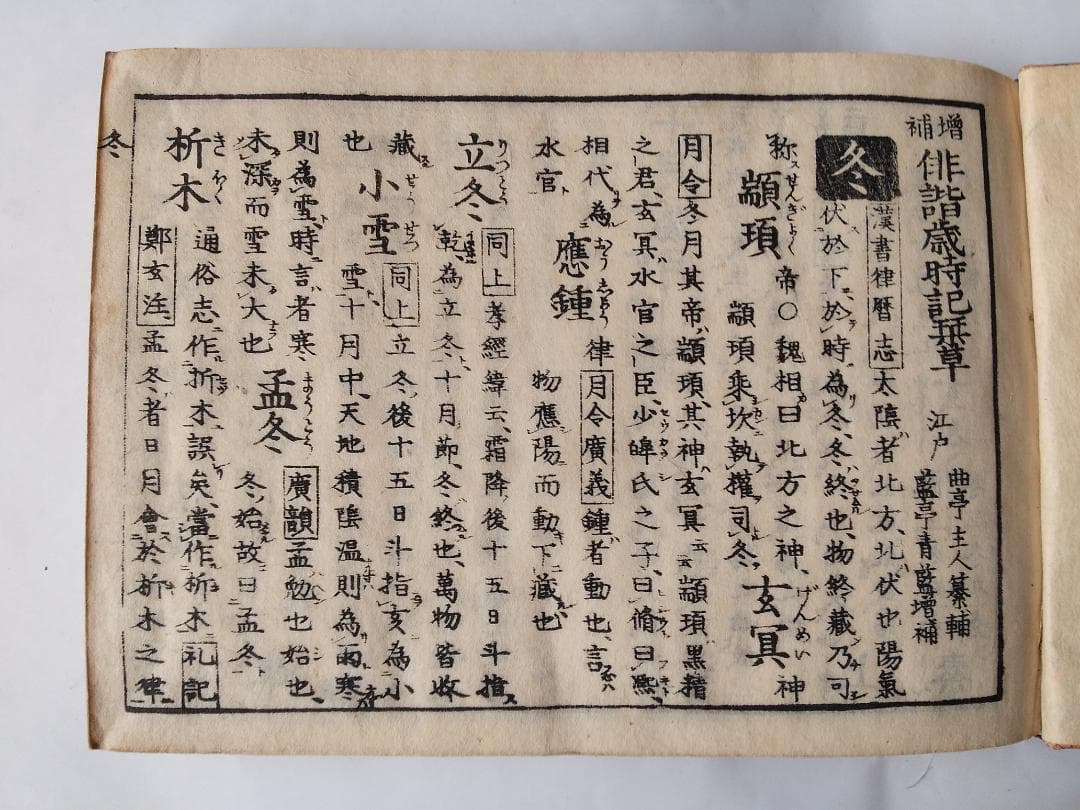 増補 俳諧歳時記栞草 江戸 曲亭主人纂輯
藍亭青藍増補
冬 漢書律暦志 太陰者北方、北伏也、陽氣
伏於下、於時為冬、冬終也、物終藏乃可
称 顓頊 せんぎよく 帝〇魏相曰北方之神、
顓頊乗坎執權司冬、 玄冥 げんめい 神
月令 冬月其帝顓頊、其神玄冥云云顓頊黒精
之君、玄冥水官之臣、少皞氏之子、曰脩曰熈、
相代為
水官 應鍾 おうしよう 律 月令廣義 鍾者動也、言
物應陽而動下藏也
立冬 りつとう 同上 孝經緯云、霜降後十五日斗指
乾、為立冬、十月節、冬終也、萬物皆收
藏 小雪 せうせつ 同上 立冬後十五日斗指亥為小
也 雪十月中、天地積陰温則為雨寒
則為雪、時言者寒
未深而雪未大也 孟冬 まうとう 廣韻 孟勉也始也、
冬ノ始故曰孟冬
析木 きぼく 通俗志作折木誤矣、當作析木 礼記
鄭玄注 孟冬者日月會於析木之律
冬